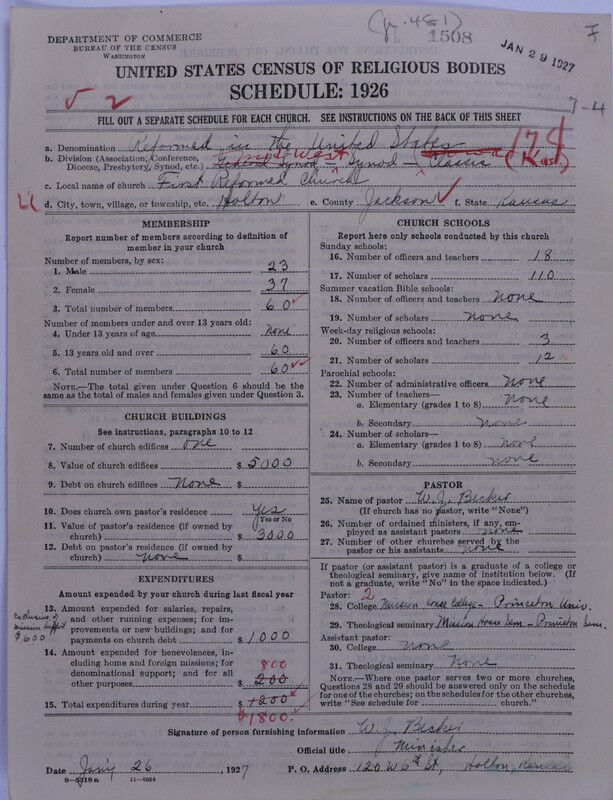 (p. 481)
1508
JAN 29 1927
F
DEPARTMENT OF COMMERCE
BUREAU OF THE CENSUS
WASHINGTON
UNITED STATES CENSUS OF RELIGIOUS BODIES
SCHEDULE: 1926
7-4
√ 2
FILL OUT A SEPARATE SCHEDULE FOR EACH CHURCH. SEE INSTRUCTIONS ON THE BACK OF THIS SHEET
a. Denomination Reformed in the United States
174
b. Division (Association, Conference, Diocese, Presbytery, Synod, etc.) General Synod - Synod - Classis (Kas.)
c. Local name of church First Reformed Church
4
d. City, town, village, or township, etc. Holton e. County Jackson f. State Kansas
MEMBERSHIP
Report number of members according to definition of member in your church
Number of members, by sex:
1. Male 23
2. Female 37
3. Total number of members 60
Number of members under and over 13 years old:
4. Under 13 years of age None
5. 13 years old and over 60
6. Total number of members 60
NOTE.—The total given under Question 6 should be the same as the total of males and females given under Question 3.
CHURCH BUILDINGS
See instructions, paragraphs 10 to 12
7. Number of church edifices One
8. Value of church edifices $ 5000
9. Debt on church edifices None $
10. Does church own pastor's residence Yes
Yes or No
11. Value of pastor's residence (if owned by church) $ 3000
12. Debt on pastor's residence (if owned by church) none $
EXPENDITURES
Amount expended by your church during last fiscal year
13. Amount expended for salaries, repairs, and other running expenses; for improvements or new buildings; and for payments on church debt $ 1000
exclusive of mission support $600
14. Amount expended for benevolences, including home and foreign missions; for denominational support; and for all other purposes $ 200
800
15. Total expenditures during year $ 1200
$1800.
CHURCH SCHOOLS
Report here only schools conducted by this church
Sunday schools:
16. Number of officers and teachers 18
17. Number of scholars 110
Summer vacation Bible schools:
18. Number of officers and teachers None
19. Number of scholars None
Week-day religious schools:
20. Number of officers and teachers 3
21. Number of scholars 12
Parochial schools:
22. Number of administrative officers None
23. Number of teachers—
a. Elementary (grades 1 to 8) None
b. Secondary None
24. Number of scholars—
a. Elementary (grades 1 to 8) None
b. Secondary none
PASTOR
25. Name of pastor W. J. Becker
(If church has no pastor, write "None")
26. Number of ordained ministers, if any, employed as assistant pastors none
27. Number of other churches served by the pastor or his assistants none
If pastor (or assistant pastor) is a graduate of a college or theological seminary, give name of institution below. (If not a graduate, write "No" in the space indicated.)
Pastor: 2
28. College Mission House College - Princeton Univ.
29. Theological seminary Mission House Sem - Princeton Sem.
Assistant pastor:
30. College None
31. Theological seminary None
NOTE.—Where one pastor serves two or more churches, Questions 28 and 29 should be answered only on the schedule for one of the churches; on the schedules for the other churches, write "See schedule for ________ church."
Signature of person furnishing information W. J. Becker
Official title Minister
Date Jan'y 26, 1927 P. O. Address 120 W 6th St, Holton, Kansas
8—5318a 11—9054